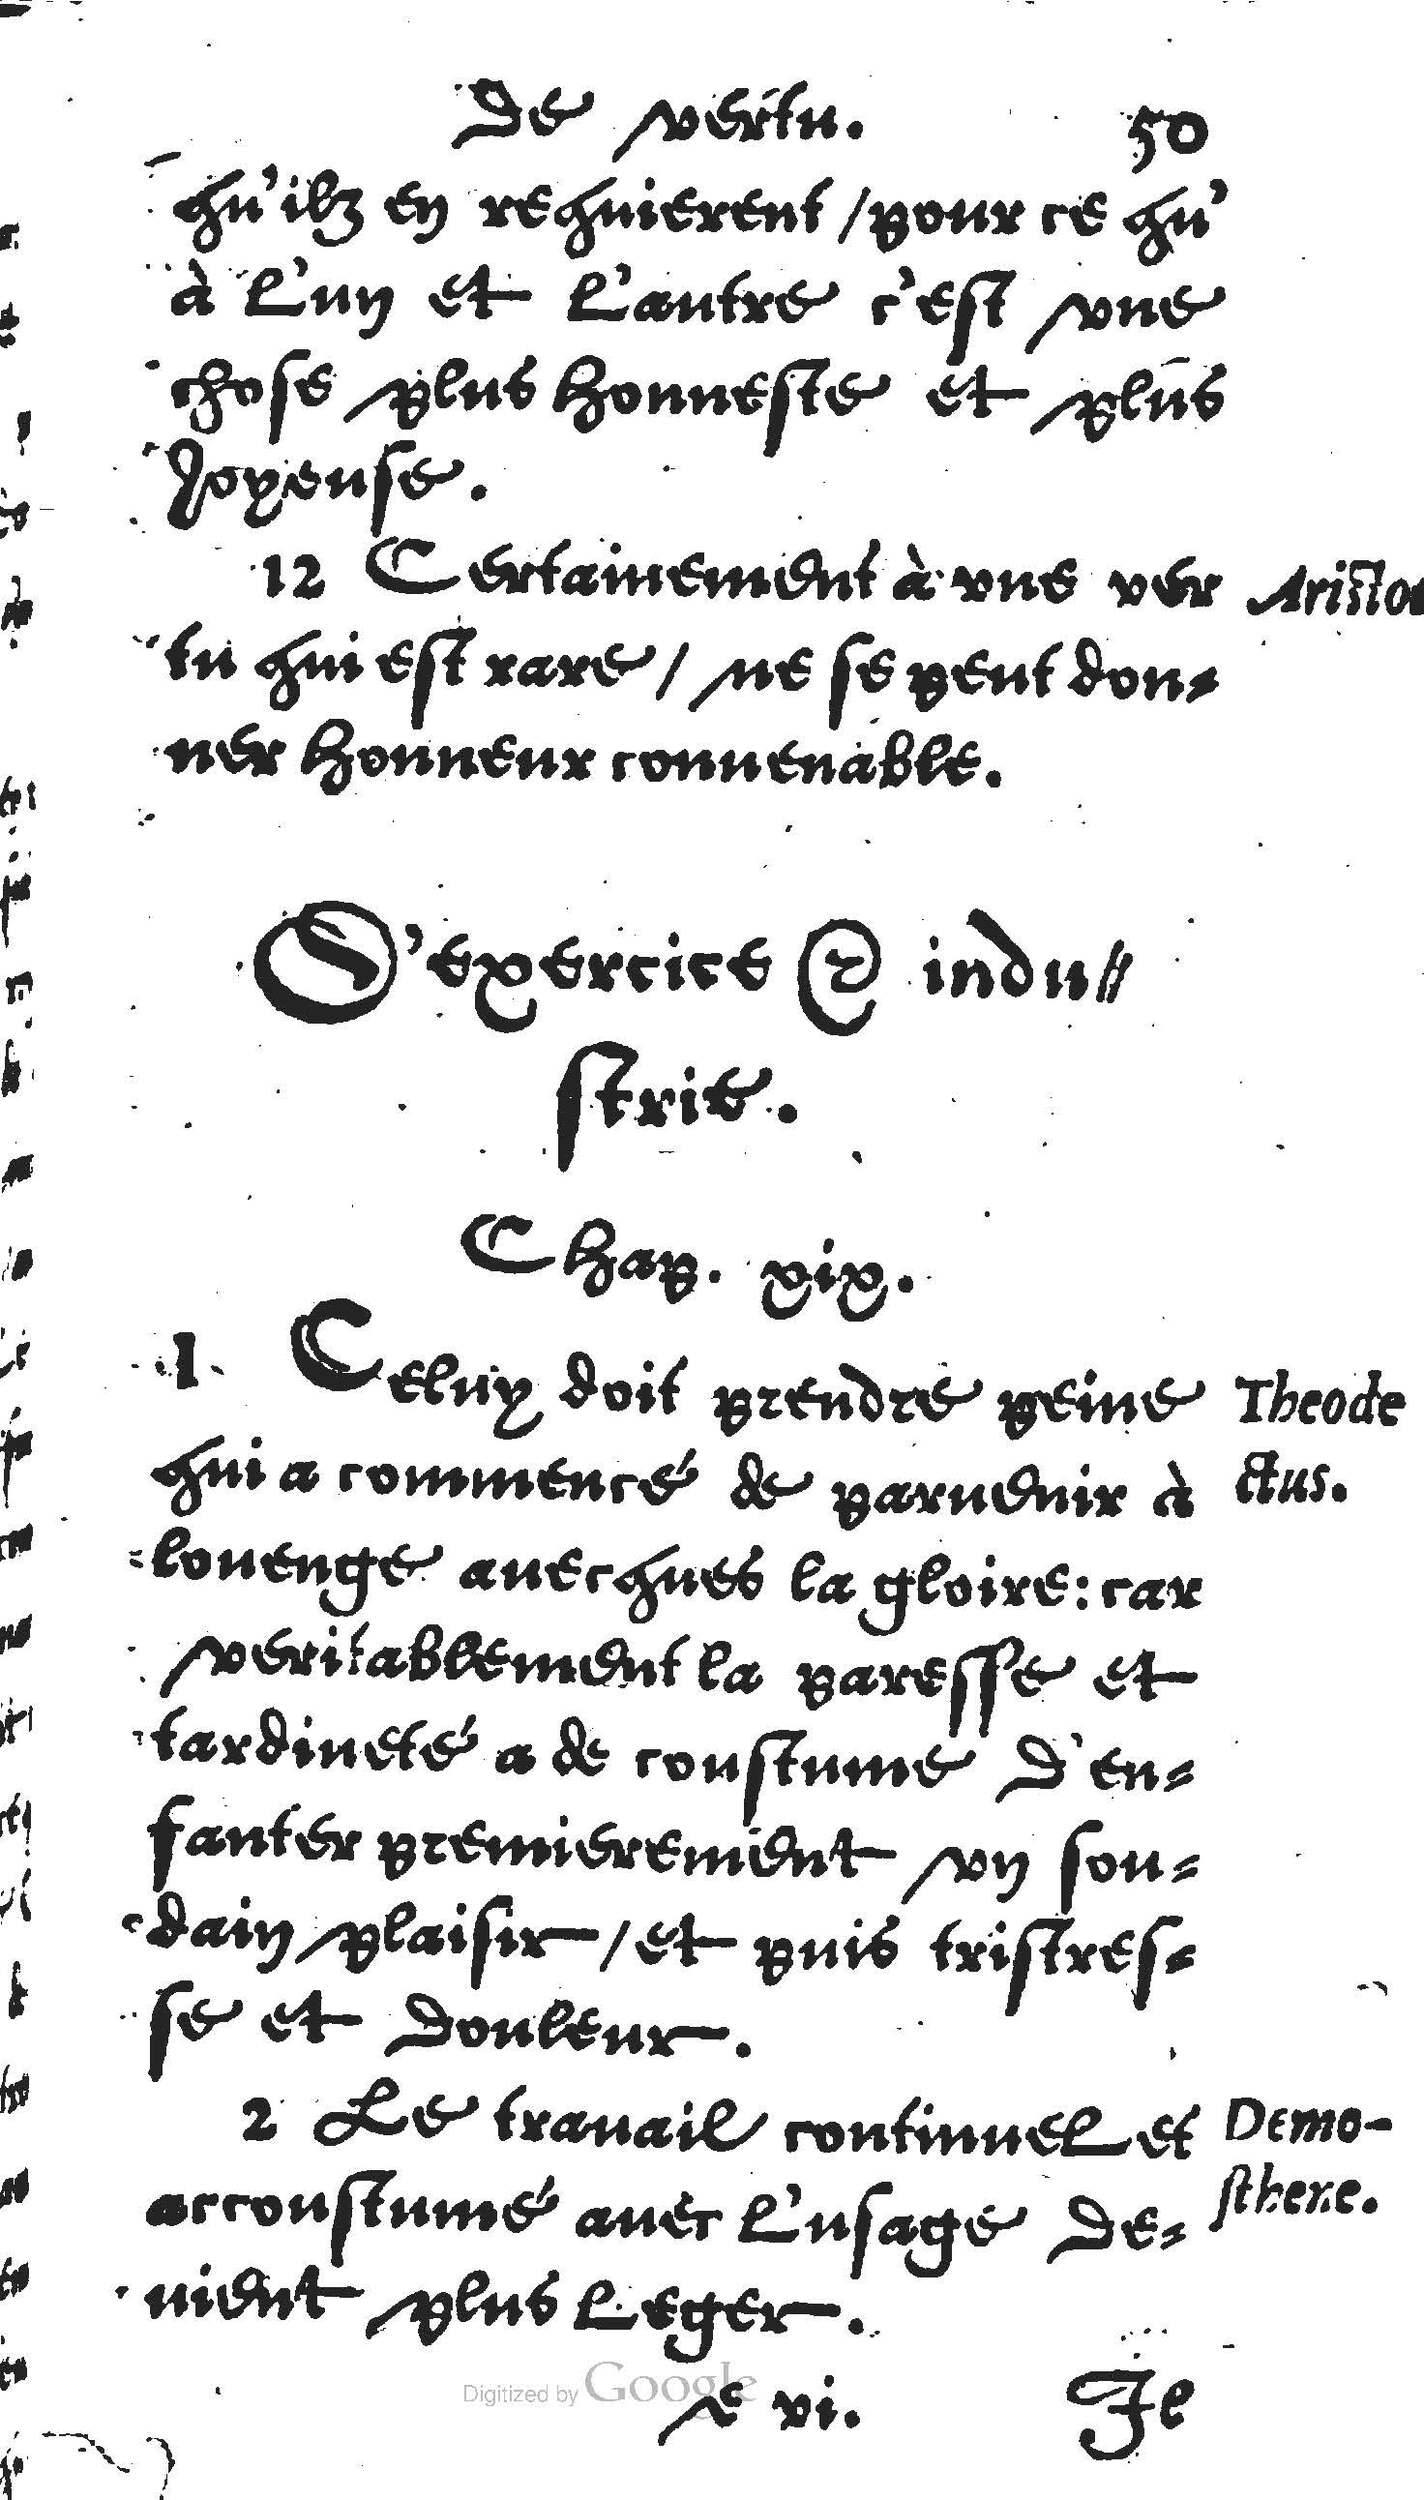 De vertu. 50
qu'ilz en requierent / pour ce qu'
à l'un et l'autre c'est vne
chose plus honneste et plus
Joyeuse.
12 Certainement à vne ver Aristo
tu qui est rare / ne se peut don-
ner honneur conuenable.
D'exercice & indu-
strie.
Chap. xix.
1 Celuy doit prendre peine Theode
qui a commencé de paruenir à ctus.
louenge auecques la gloire: car
veritablement la paresse et
tardiueté a de coustume d'en-
fanter premierement vn sou-
dain plaisir / et puis tristres-
se et douleur.
2 Le trauail continuel et Demo-
accoustumé auec l'usage de- sthene.
uient plus leger.
Digitized by Google
e vi. Je